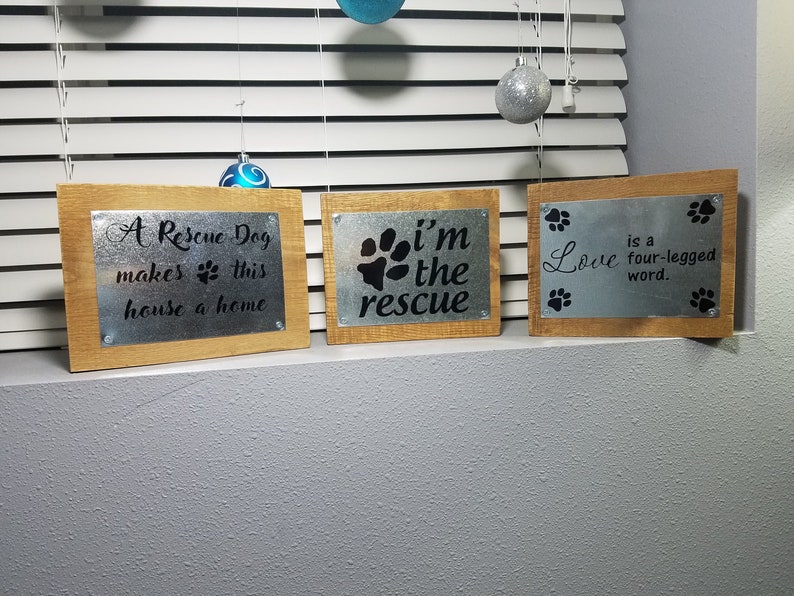 A Rescue Dog
makes this
house a home
i'm
the
rescue
Love is a
four-legged
word.